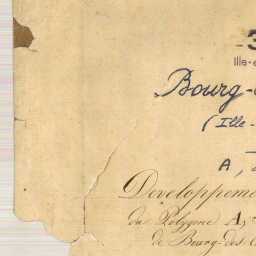 - 3
Ille-
Bourg-
(Ille-
A,
Developpeme
du Polygone A,
de Bourg-des-